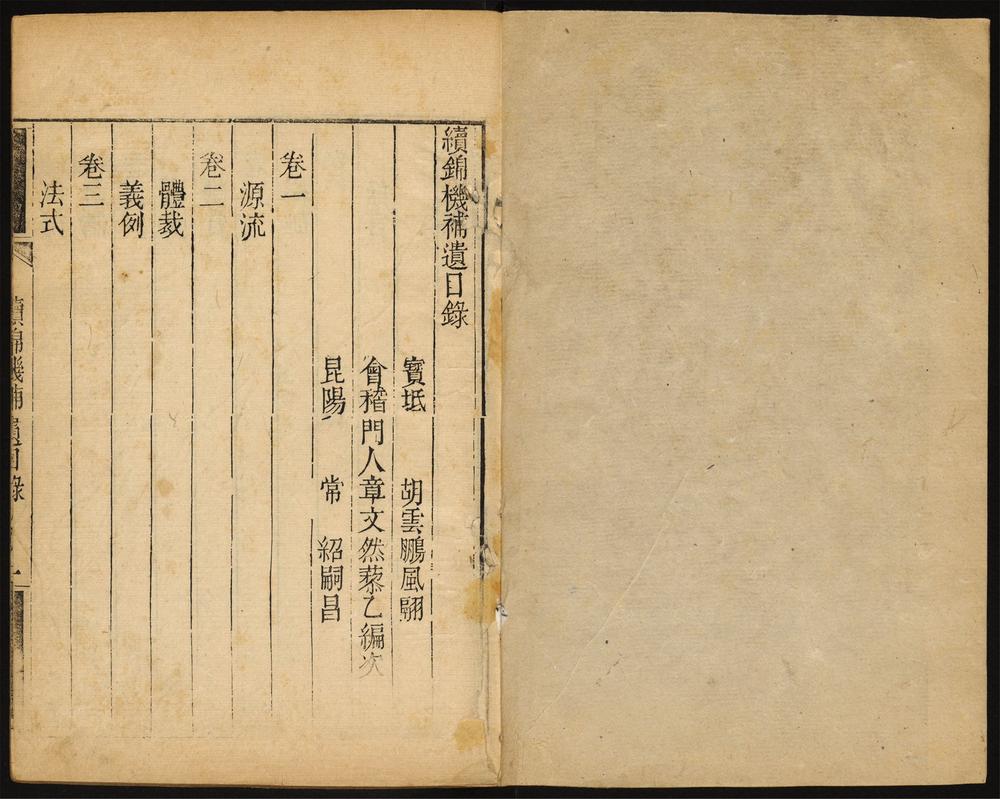 續錦機補遺目錄
寳坻　胡雲鵬風翮
會稽門人章文然藜乙編次
昆陽　常　紹嗣昌
卷一
源流
卷二
體裁
義例
卷三
法式
續錦機補遺目錄　一